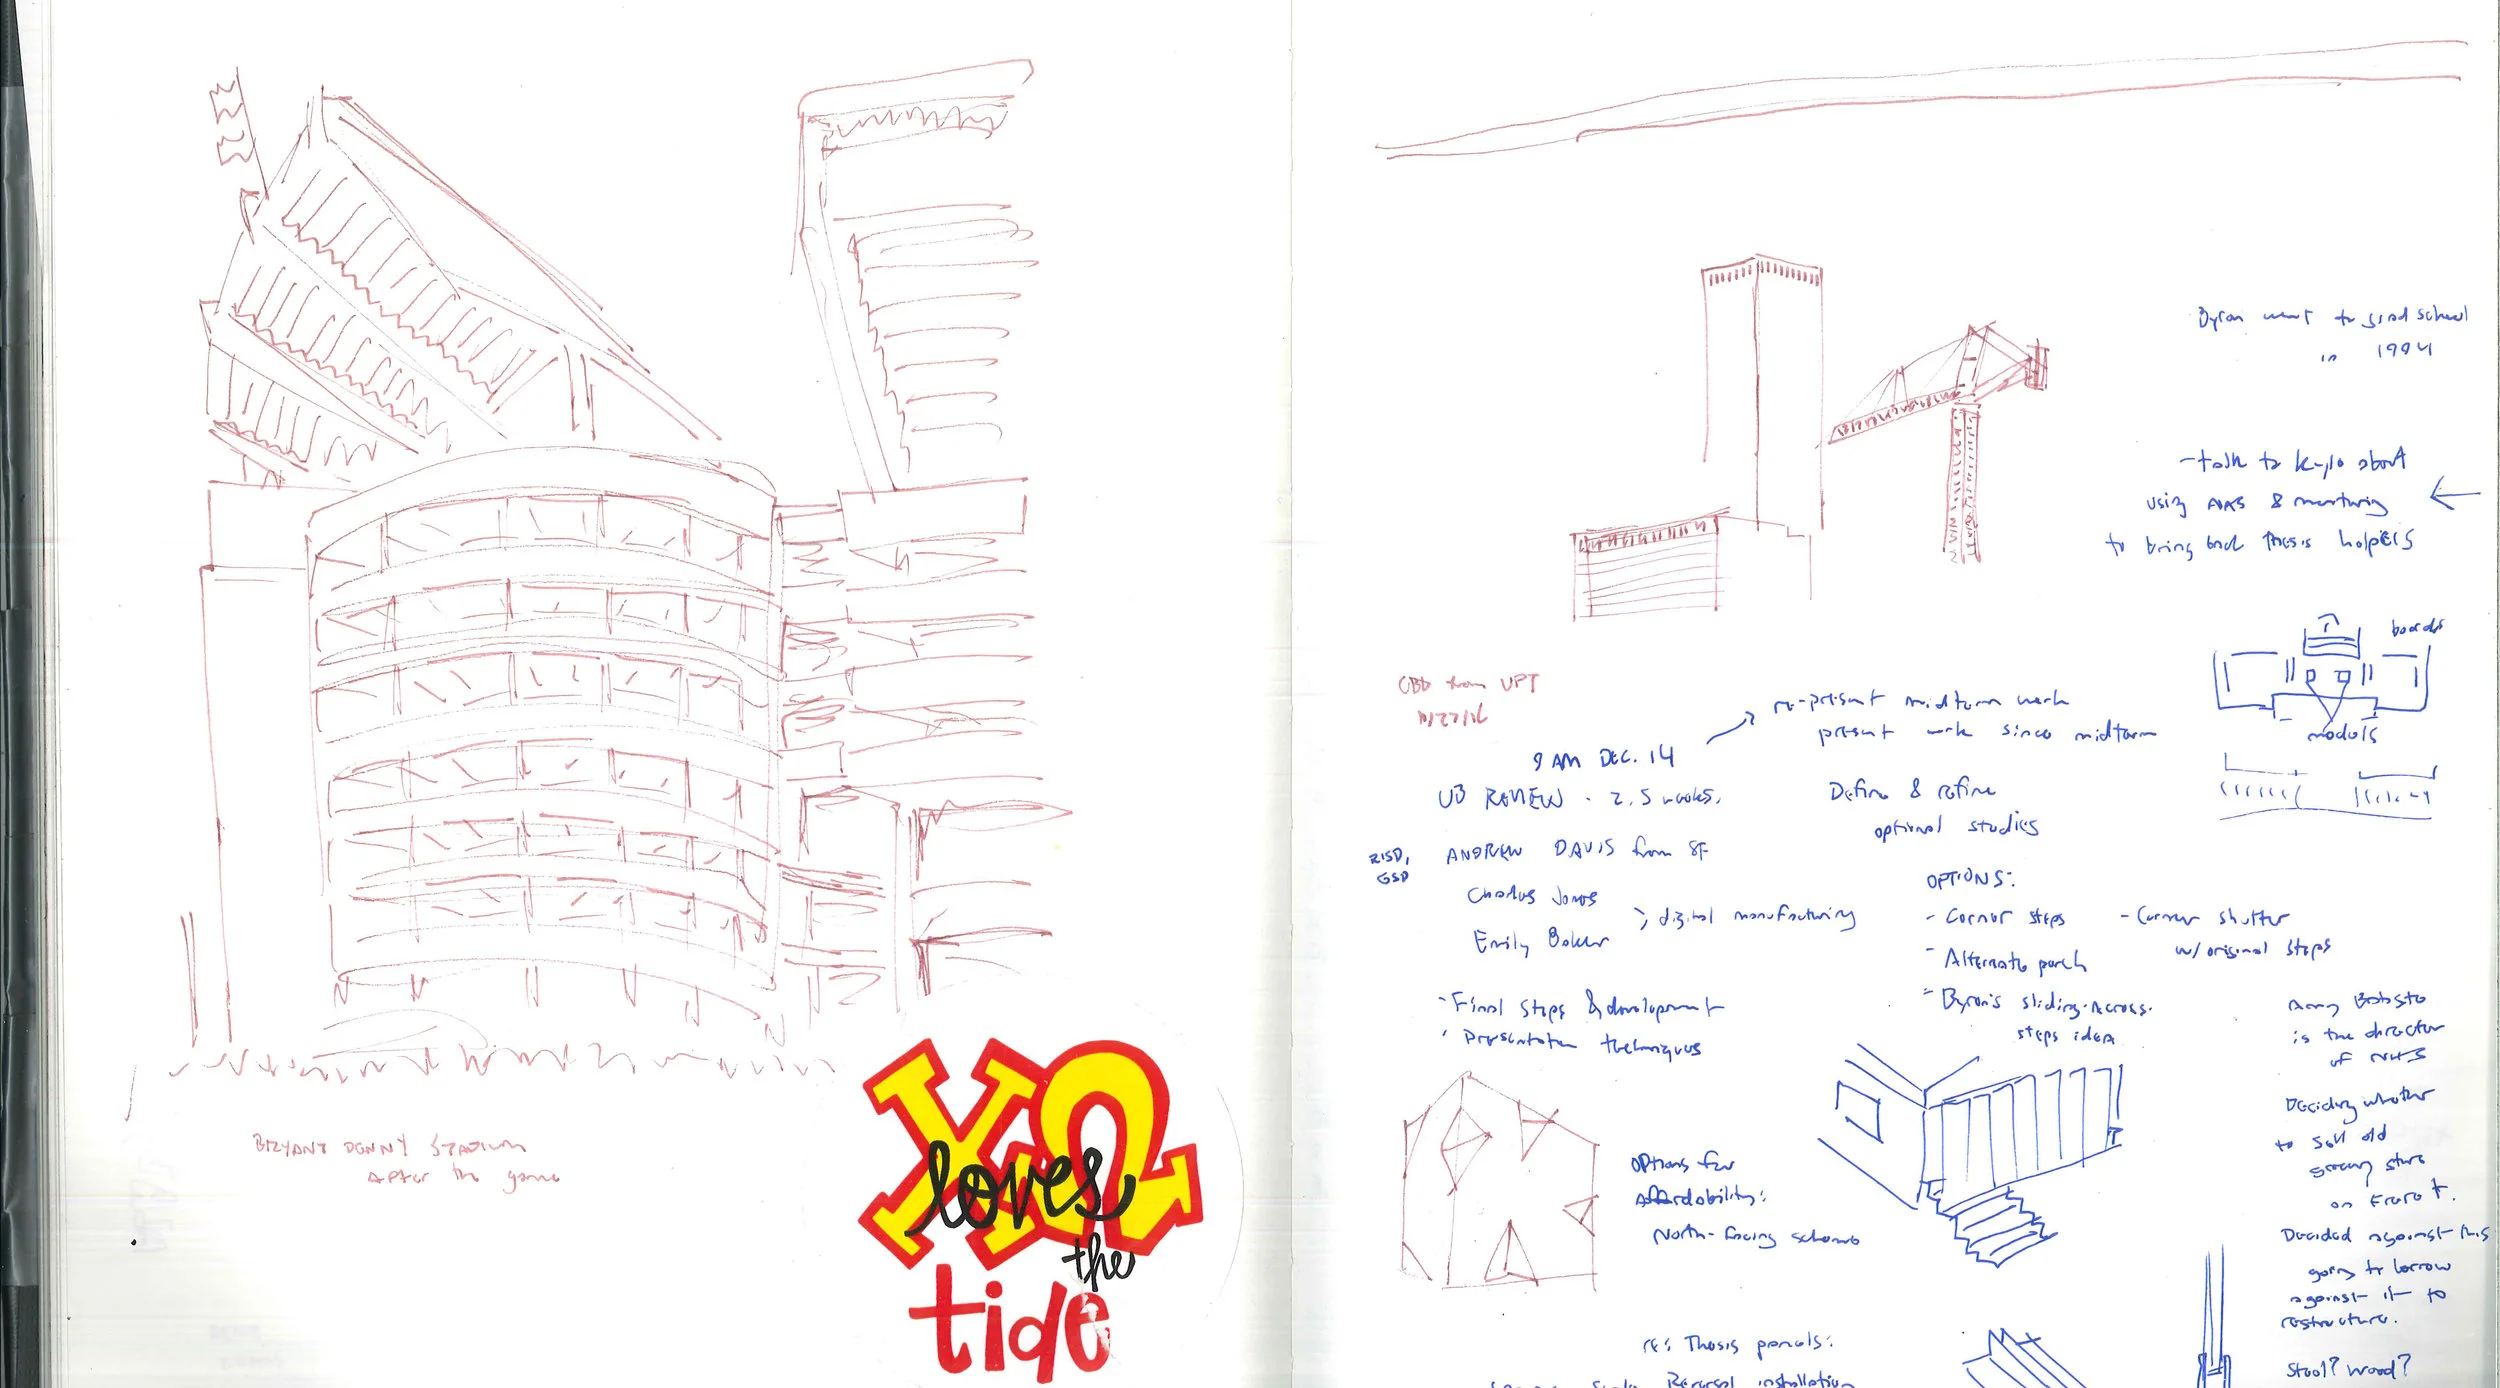 BRYANT DENNY STADIUM
AFTER the game
ΧΩ
loves
the
tide
Byron went to grad school
in 1994
- talk to Kylo about
using AIAS & mentoring
to bring back thesis helpers
boards
models
CBD from UPT
11/27/16
re-present midterm work
present work since midterm
9 AM DEC. 14
UB REVIEW - 2.5 weeks.
Define & refine
optional studies
RISD,
GSD
ANDREW DAVIS from SF
Charles Jones
Emily Baker
> digital manufacturing
OPTIONS:
- Corner steps
- Alternate porch
- Byron's sliding-Across-
steps idea
- Corner shutter
w/ original steps
- Final steps & development
- Presentation techniques
Amy
is the director
of NHS
Deciding whether
to sell old
grocery store
on Freret.
Decided against this
going to borrow
against it to
restructure.
Options for
Affordability:
North-facing scheme
RE: Thesis panels:
Scale Reversal installation
Steel? Wood?